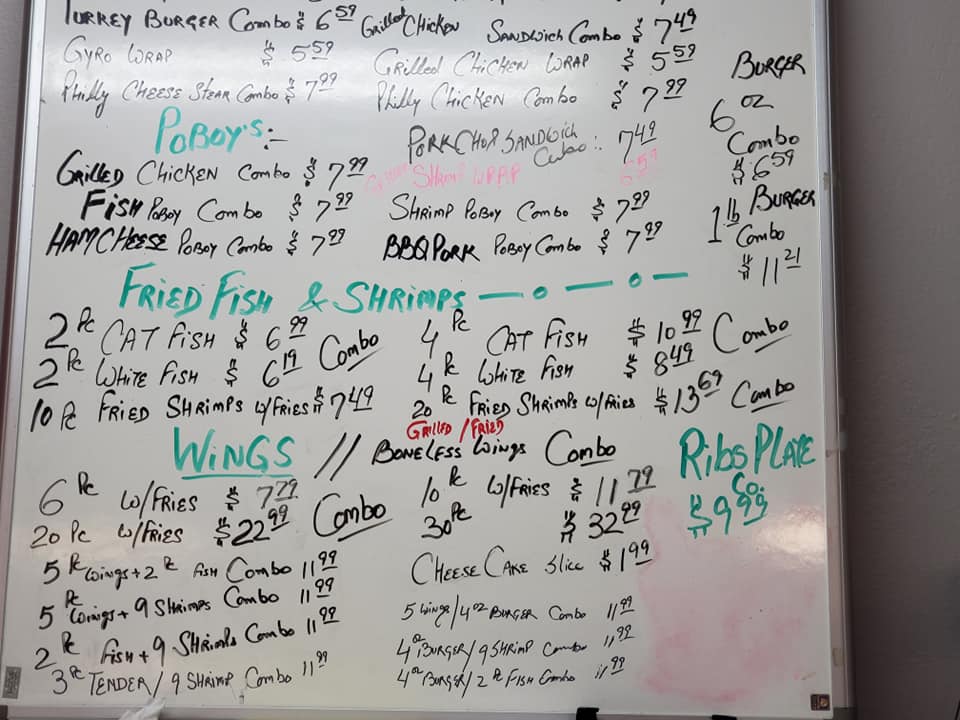 TURKEY BURGER COMBO $ 6 59 Grilled CHICKEN SANDWICH COMBO $ 7 49
GYRO WRAP $ 5 59 Grilled CHICKEN WRAP $ 5 59
Philly CHEESE STEAK Combo $ 7 99 Philly CHICKEN Combo $ 7 99
BURGER
6 oz
Combo
$ 6 59
1 lb BURGER
Combo
$ 11 21
POBOY'S:-
PORK CHOP SANDWICH Combo : 7 49
GRILLED CHICKEN Combo $ 7 99 SHRIMP WRAP 6 59
FISH POBOY Combo $ 7 99 SHRIMP POBOY Combo $ 7 99
HAM CHEESE POBOY Combo $ 7 99 BBQ PORK POBOY Combo $ 7 99
FRIED FISH & SHRIMPS
2 Pc CAT FISH $ 6 99 4 Pc CAT FISH $ 10 99
2 Pc WHITE FISH $ 6 19 Combo 4 Pc WHITE FISH $ 8 49 Combo
10 Pc FRIED SHRIMPS W/FRIES $ 7 49 20 Pc FRIED SHRIMPS W/FRIES $ 13 69 Combo
GRILLED / FRIED
WINGS // BONELESS WINGS Combo
6 Pc W/FRIES $ 7 79 10 Pc W/FRIES $ 11 79
20 Pc W/FRIES $ 22 99 Combo 30 Pc $ 32 99
RIBS PLATE
Co.
$ 9 99
5 Pc Wings + 2 Pc FISH Combo 11 99 CHEESE CAKE Slice $ 1 99
5 Pc Wings + 9 SHRIMPS Combo 11 99 5 WINGS / 4 oz BURGER Combo 11 99
2 Pc FISH + 9 SHRIMPS Combo 11 99 4 oz BURGER / 9 SHRIMP Combo 11 99
3 Pc TENDER / 9 SHRIMP Combo 11 99 4 oz BURGER / 2 Pc FISH Combo 11 99